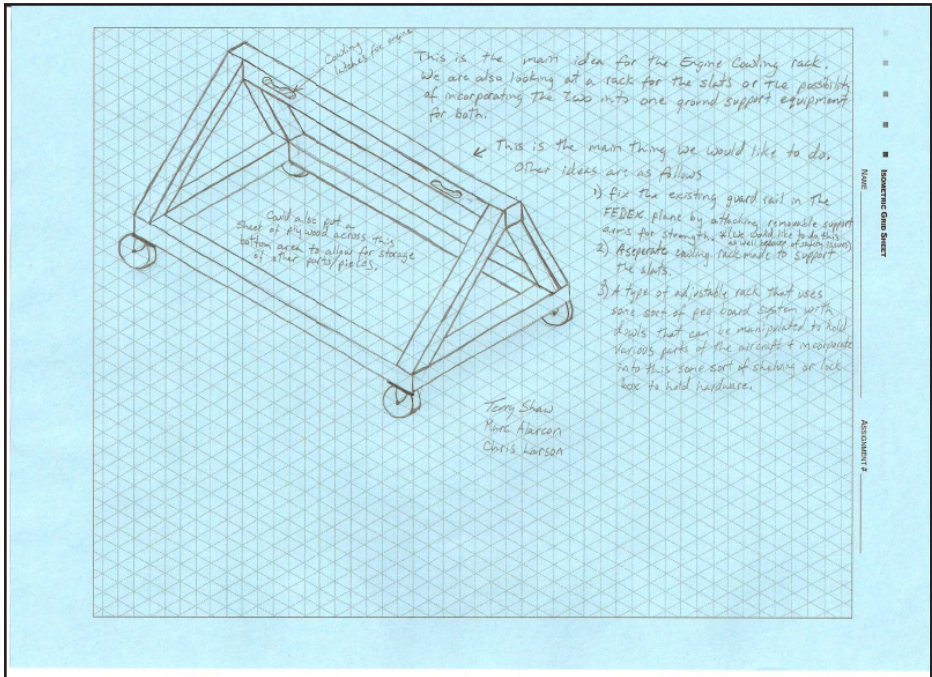 Cowling
latches for engine
This is the main idea for the Engine Cowling rack.
We are also looking at a rack for the slats or the possibility
of incorporating the two into one ground support equipment
for both.
This is the main thing we would like to do.
Other ideas are as follows
1) fix the existing guard rail in the
FEDEX plane by attaching removable support
arms for strength. *(we would like to do this
as well because of safety issues)
2) A seperate cowling rack made to support
the slats.
3) A type of adjustable rack that uses
some sort of peg board system with
dowls that can be manipulated to hold
various parts of the aircraft + incorporate
into this some sort of shelving or lock
box to hold hardware.
Could also put a
sheet of plywood across this
bottom area to allow for storage
of other parts/pieces.
Terry Shaw
Marc Alarcon
Chris Larson
ISOMETRIC GRID SHEET
NAME
ASSIGNMENT #